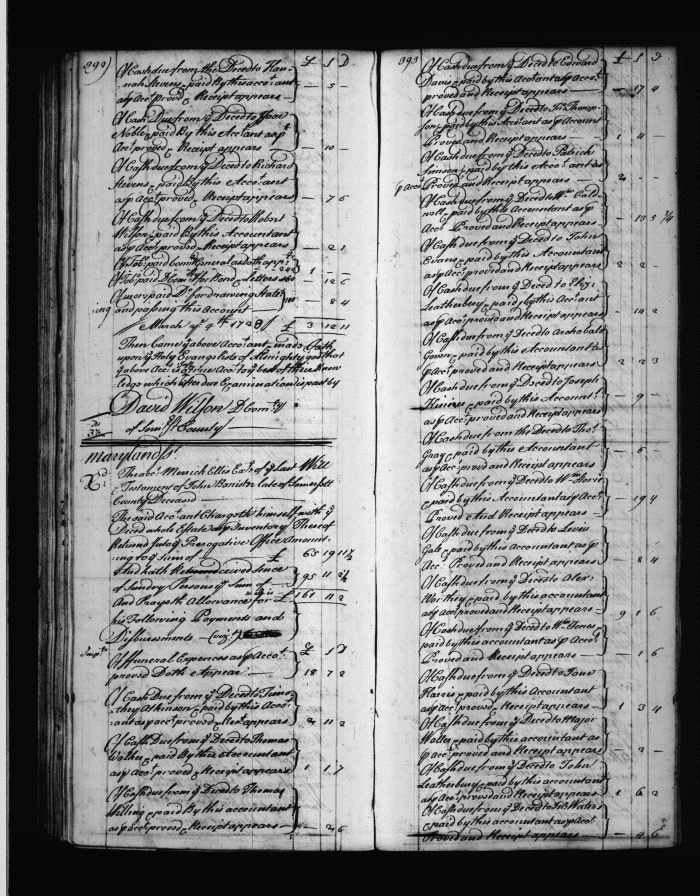 392)
£ S D
Of Cash due from the Deced to Han-
nah Stevens paid by this accotant
asp Accot proved & Receipt appears — — 5 —
Of Cash Due from ye Deced to Isaac
Noble paid By this Accotant asp
Accot proved & Receipt appears — — 10 —
Of Cash due from ye Deced to Richard
Stevens & paid By this Accotant
asp Accot proved & Receipt appears — 7 6
Of Cash due from ye Deced to Robert
Wilson paid By this Accountant
asp Accot proved & Receipt appears — 2 1
1 — —
Letters — 12 6
Of mony paid Do for drawing Stateing
and passing this Account — — 8 4
March ye 4th 1728/ £ 3 12 11
Then Came ye above Accotant & made Oath
upon ye Holy Evangelists of Almighty god that
ye above Accot is a true Accot to ye best of their know
ledge which after due Examination is past by
David Wilson D Comry
of Somst County
Maryland ss.
The accot Merrich Ellis Exr of ye last Will
& Testament of John Banister late of Somerset
County Deceased —
The said Accotant Chargeth himself with ye
Deced whole Estate asp Inventory Thereof
Returned into ye Prerogative Office Amount-
ing to ye Sum of — £ 65 19 11½
And hath received Since
of Sundry Persons ye Sum of 95 11 2½
£ 161 11 2
And Prayeth Allowance for
his Following Payments and
Disbursements — (viz)
Impr £ S D
Of Funeral Expences asp Accot
proved Doth Appear — 18 7 2
Of Cash Due from ye Deced to Timo-
thy Atkinson & paid by this Acco-
ant asp accot proved & Rect appears 2 11 2
Of Cash Due from ye Deced to Thomas
Walker & paid By this Accountant
asp Accot proved & Receipt appears 1 1 7
Of Cash due from ye Deced to Thomas
Willing & paid By this accountant
asp accot proved & Receipt appears — 2 6
393
£ S D
Of Cash due from ye Deced to Edward
Davis & paid by this Accotant asp Accot
proved and Receipt appears — 17 4
Of Cash due from ye Deced to
son & paid by this Accotant asp Account
Proved and Receipt appears — 1 11 —
Of Cash due from ye Deced to Patrick
& paid by this Accot ant as
p Accot Proved and Receipt appears — 2 — —
Of Cash due from ye Deced to Wm Cald
well & paid by this Accountant asp
Accot Proved and Receipt appears
Of Cash due from ye Deced to John
Evans & paid by this Accountant
asp Accot proved and Receipt appears — 2 2 —
Of Cash due from ye Deced to
Leatherbery & paid by this Accotant
asp Accot proved and Receipt appears — 14 2
Of Cash due from ye Deced to Archebald
& paid by this Accountant as
p Accot proved and Receipt appears 2 2 3
Of Cash due from ye Deced to Joseph
& paid by this Account — 9 —
asp Accot proved and Receipt appears
Of Cash due from the Deced to Thos
Gray & paid by this Accountant
asp Accot proved and Receipt appears — 6 —
Of Cash due from ye Deced to Wm
& paid by this Accountant asp Accot
Proved And Receipt appears — 19 4
Of Cash due from ye Deced to Lewis
& paid by this Accountant asp
Accot Proved and Receipt appears — 8 4
Of Cash due from ye Deced to Alexr
& paid by this accountant
asp Accot proved and Receipt appears — 9 1 6
Of Cash due from ye Deced to Wm Jones
& paid by this accountant asp Accot
Proved and Receipt appears — 1 6
Of Cash due from ye Deced to Jane
Harris & paid by this Accountant
asp Accot proved & Receipt appears — 1 3 4
Of Cash due from ye Deced to Major
Waller & paid by this accountant as
p Accot proved and Receipt appears — 2 —
Of Cash due from ye Deced to John
Leatherbury & paid by this accountant
asp Accot proved and Receipt appears 1 6 2
Of Cash due from ye Deced to Waters
& paid by this accountant asp Accot
Proved and Receipt appears — 11 6